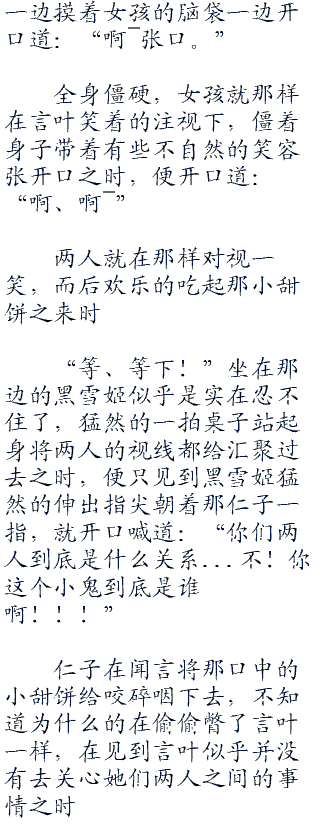 一边摸着女孩的脑袋一边开
口道：“啊¯张口。”
全身僵硬，女孩就那样
在言叶笑着的注视下，僵着
身子带着有些不自然的笑容
张开口之时，便开口道：
“啊、啊¯”
两人就在那样对视一
笑，而后欢乐的吃起那小甜
饼之来时
“等、等下！”坐在那
边的黑雪姬似乎是实在忍不
住了，猛然的一拍桌子站起
身将两人的视线都给汇聚过
去之时，便只见到黑雪姬猛
然的伸出指尖朝着那仁子一
指，就开口喊道：“你们两
人到底是什么关系...不！你
这个小鬼到底是谁
啊！！！”
仁子在闻言将那口中的
小甜饼给咬碎咽下去，不知
道为什么的在偷偷瞥了言叶
一样，在见到言叶似乎并没
有去关心她们两人之间的事
情之时